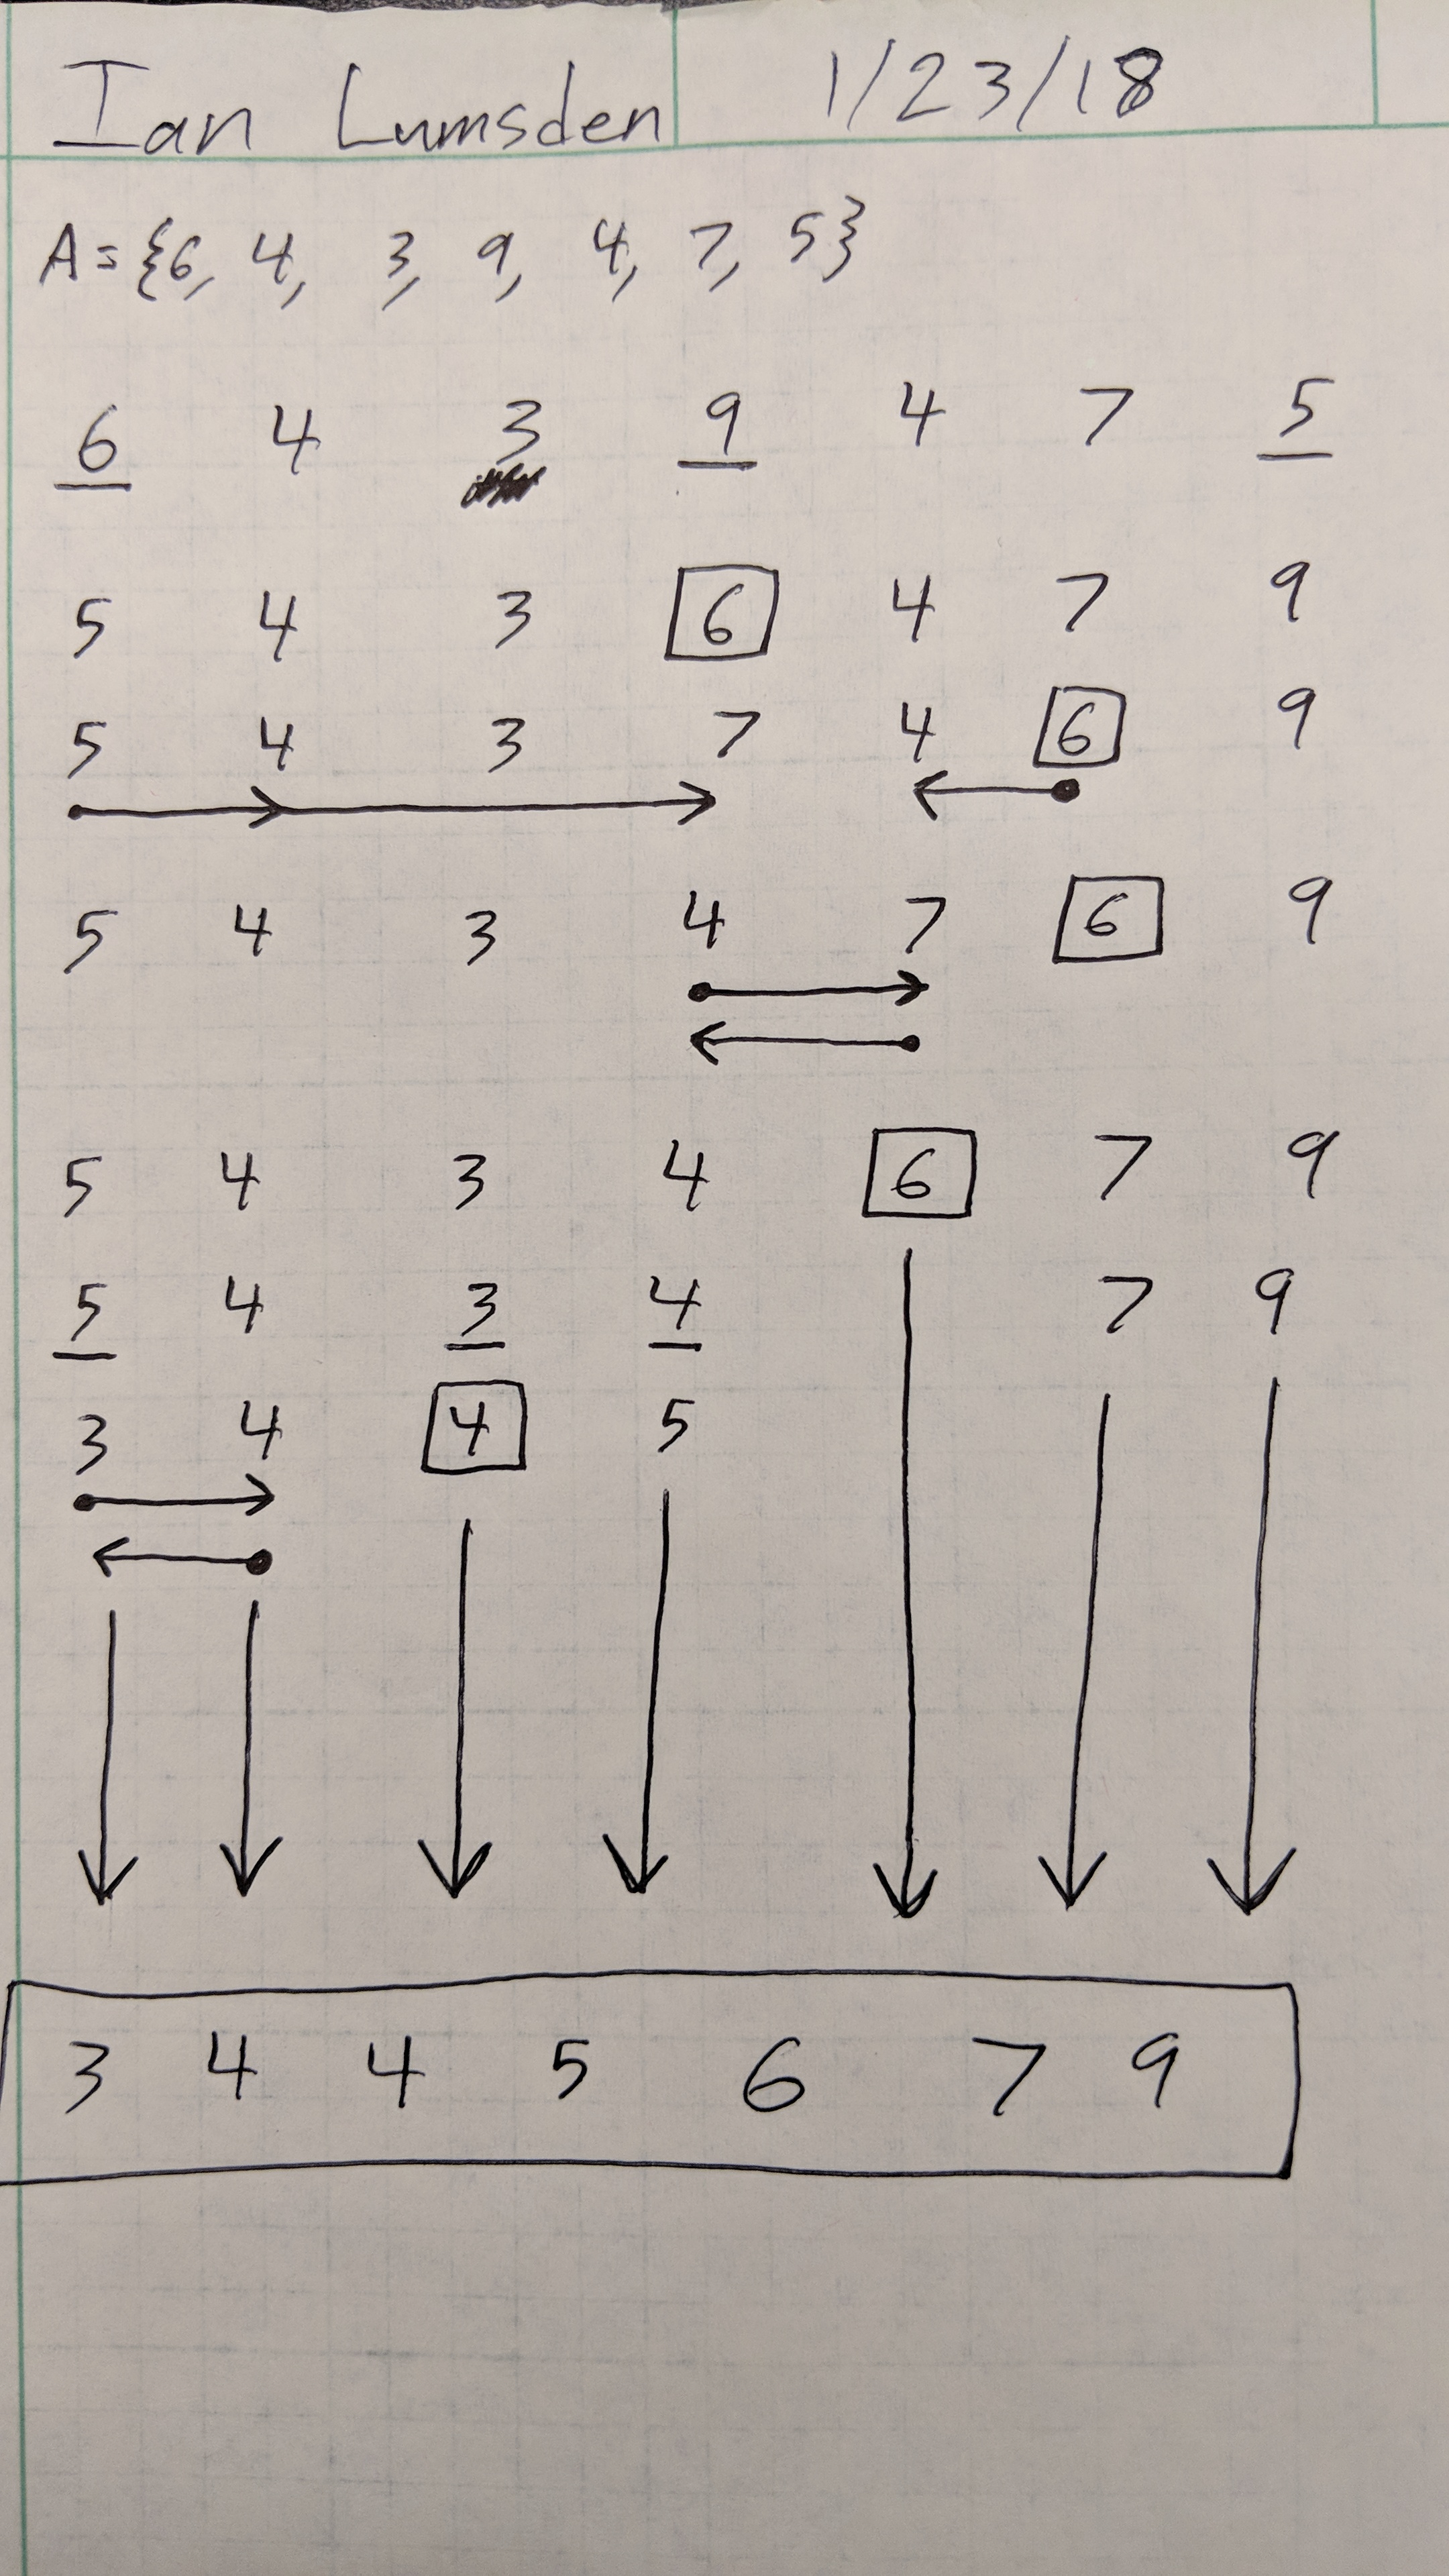 Ian Lumsden 1/23/18
A={6, 4, 3, 9, 4, 7, 5}
6 4 3 9 4 7 5
5 4 3 6 4 7 9
5 4 3 7 4 6 9
5 4 3 4 7 6 9
5 4 3 4 6 7 9
5 4 3 4 7 9
3 4 4 5
3 4 4 5 6 7 9